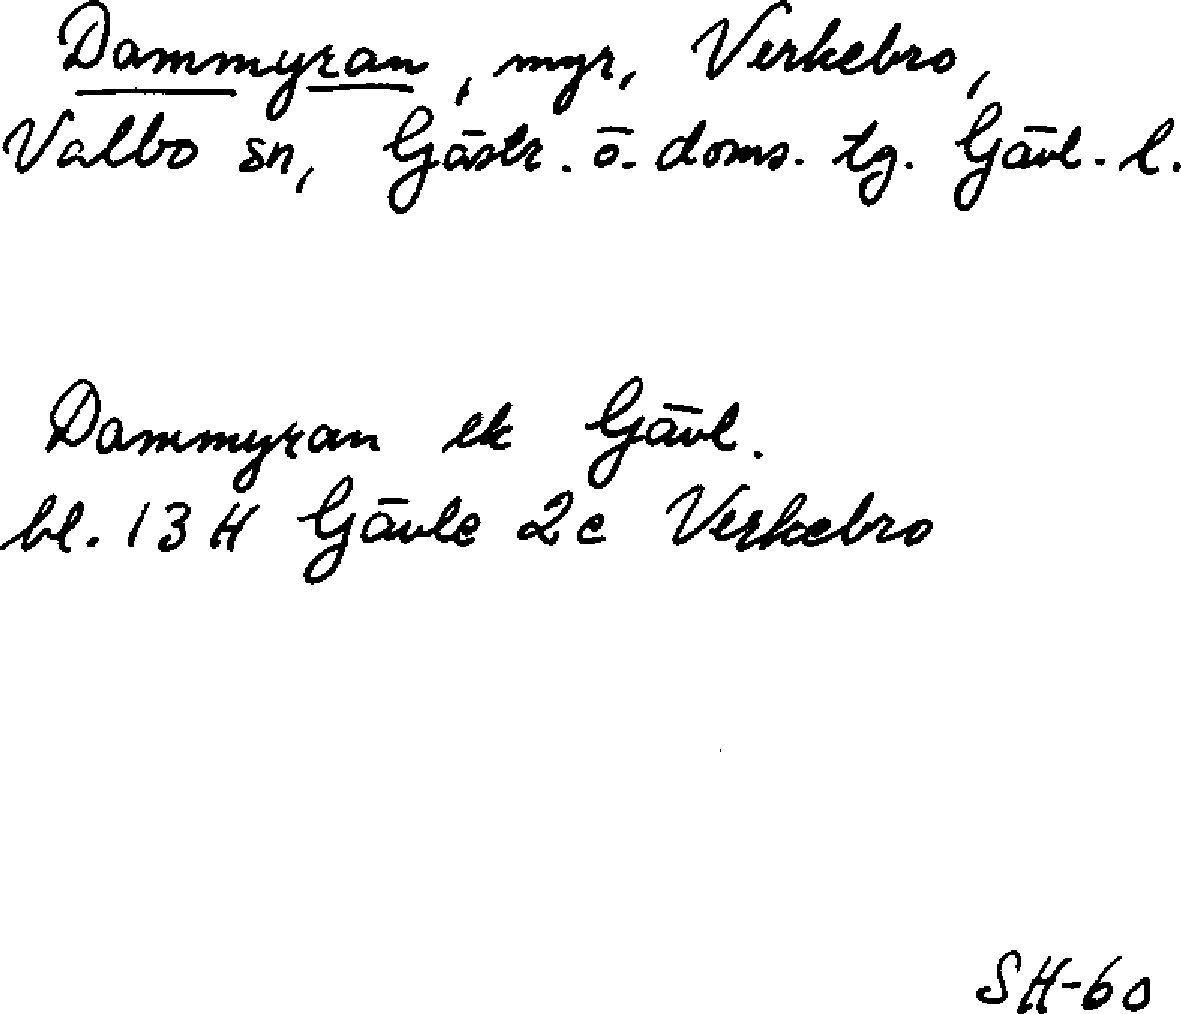 Dammyran, myr, Verkebro,
Valbo sn, Gästr. ö. doms. tg. Gävl. l.
Dammyran ek Gävl.
bl. 13 H Gävle 2c Verkebro
SH-60